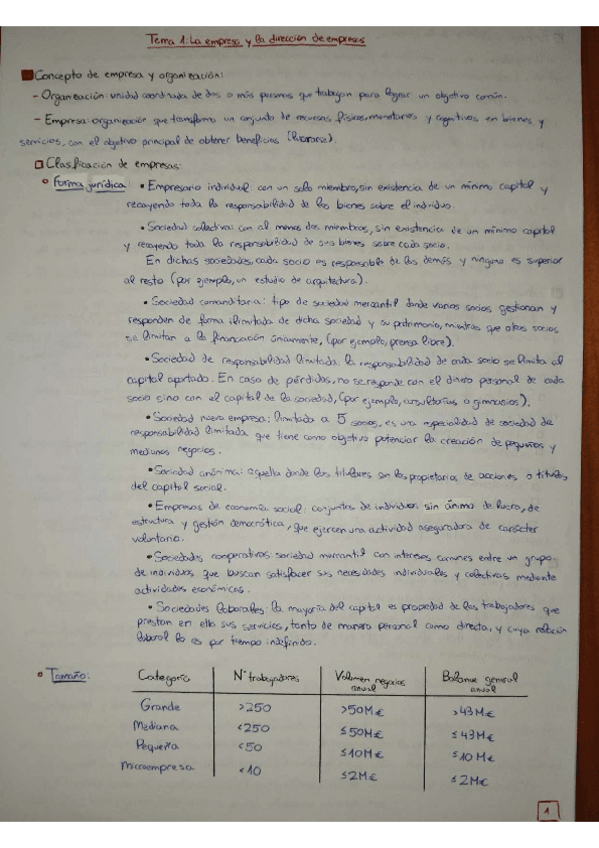 Tema 1: La empresa y la dirección de empresas
Concepto de empresa y organización:
- Organización: unidad coordinada de dos o más personas que trabajan para lograr un objetivo común.
- Empresa: organización que transforma un conjunto de recursos físicos, monetarios y cognitivos en bienes y
servicios, con el objetivo principal de obtener beneficios (lucrarse).
Clasificación de empresas:
Forma jurídica: • Empresario individual con un solo miembro, sin existencia de un mínimo capital y
recayendo toda la responsabilidad de los bienes sobre el individuo.
• Sociedad colectiva: con al menos dos miembros, sin existencia de un mínimo capital
y recayendo toda la responsabilidad de sus bienes sobre cada socio.
En dichas sociedades, cada socio es responsable de los demás y ninguno es superior
al resto (por ejemplo, un estudio de arquitectura).
• Sociedad comanditaria: tipo de sociedad mercantil donde varios socios gestionan y
responden de forma ilimitada de dicha sociedad y su patrimonio, mientras que otros socios
se limitan a la financiación únicamente, (por ejemplo, prensa libre).
• Sociedad de responsabilidad limitada: la responsabilidad de cada socio se limita al
capital aportado. En caso de pérdidas, no se responde con el dinero personal de cada
socio sino con el capital de la sociedad, (por ejemplo, consultorías o gimnasios).
• Sociedad nueva empresa: limitada a 5 socios, es una especialidad de sociedad de
responsabilidad limitada que tiene como objetivo potenciar la creación de pequeños y
medianos negocios.
• Sociedad anónima: aquella donde los titulares son los propietarios de acciones o títulos
del capital social.
• Empresas de economía social: conjuntos de individuos sin ánimo de lucro, de
estructura y gestión democrática, que ejercen una actividad aseguradora de carácter
voluntario.
• Sociedades cooperativas: sociedad mercantil con intereses comunes entre un grupo
de individuos que buscan satisfacer sus necesidades individuales y colectivas mediante
actividades económicas.
• Sociedades laborales: la mayoría del capital es propiedad de los trabajadores que
prestan en ella sus servicios, tanto de manera personal como directa, y cuya relación
laboral lo es por tiempo indefinido.
Tamaño: Categoría Nº trabajadores Volumen negocios anual Balance general anual
Grande >250 >50M€ >43M€
Mediana <250 ≤50M€ ≤43M€
Pequeña <50 ≤10M€ ≤10M€
Microempresa <10 ≤2M€ ≤2M€
1